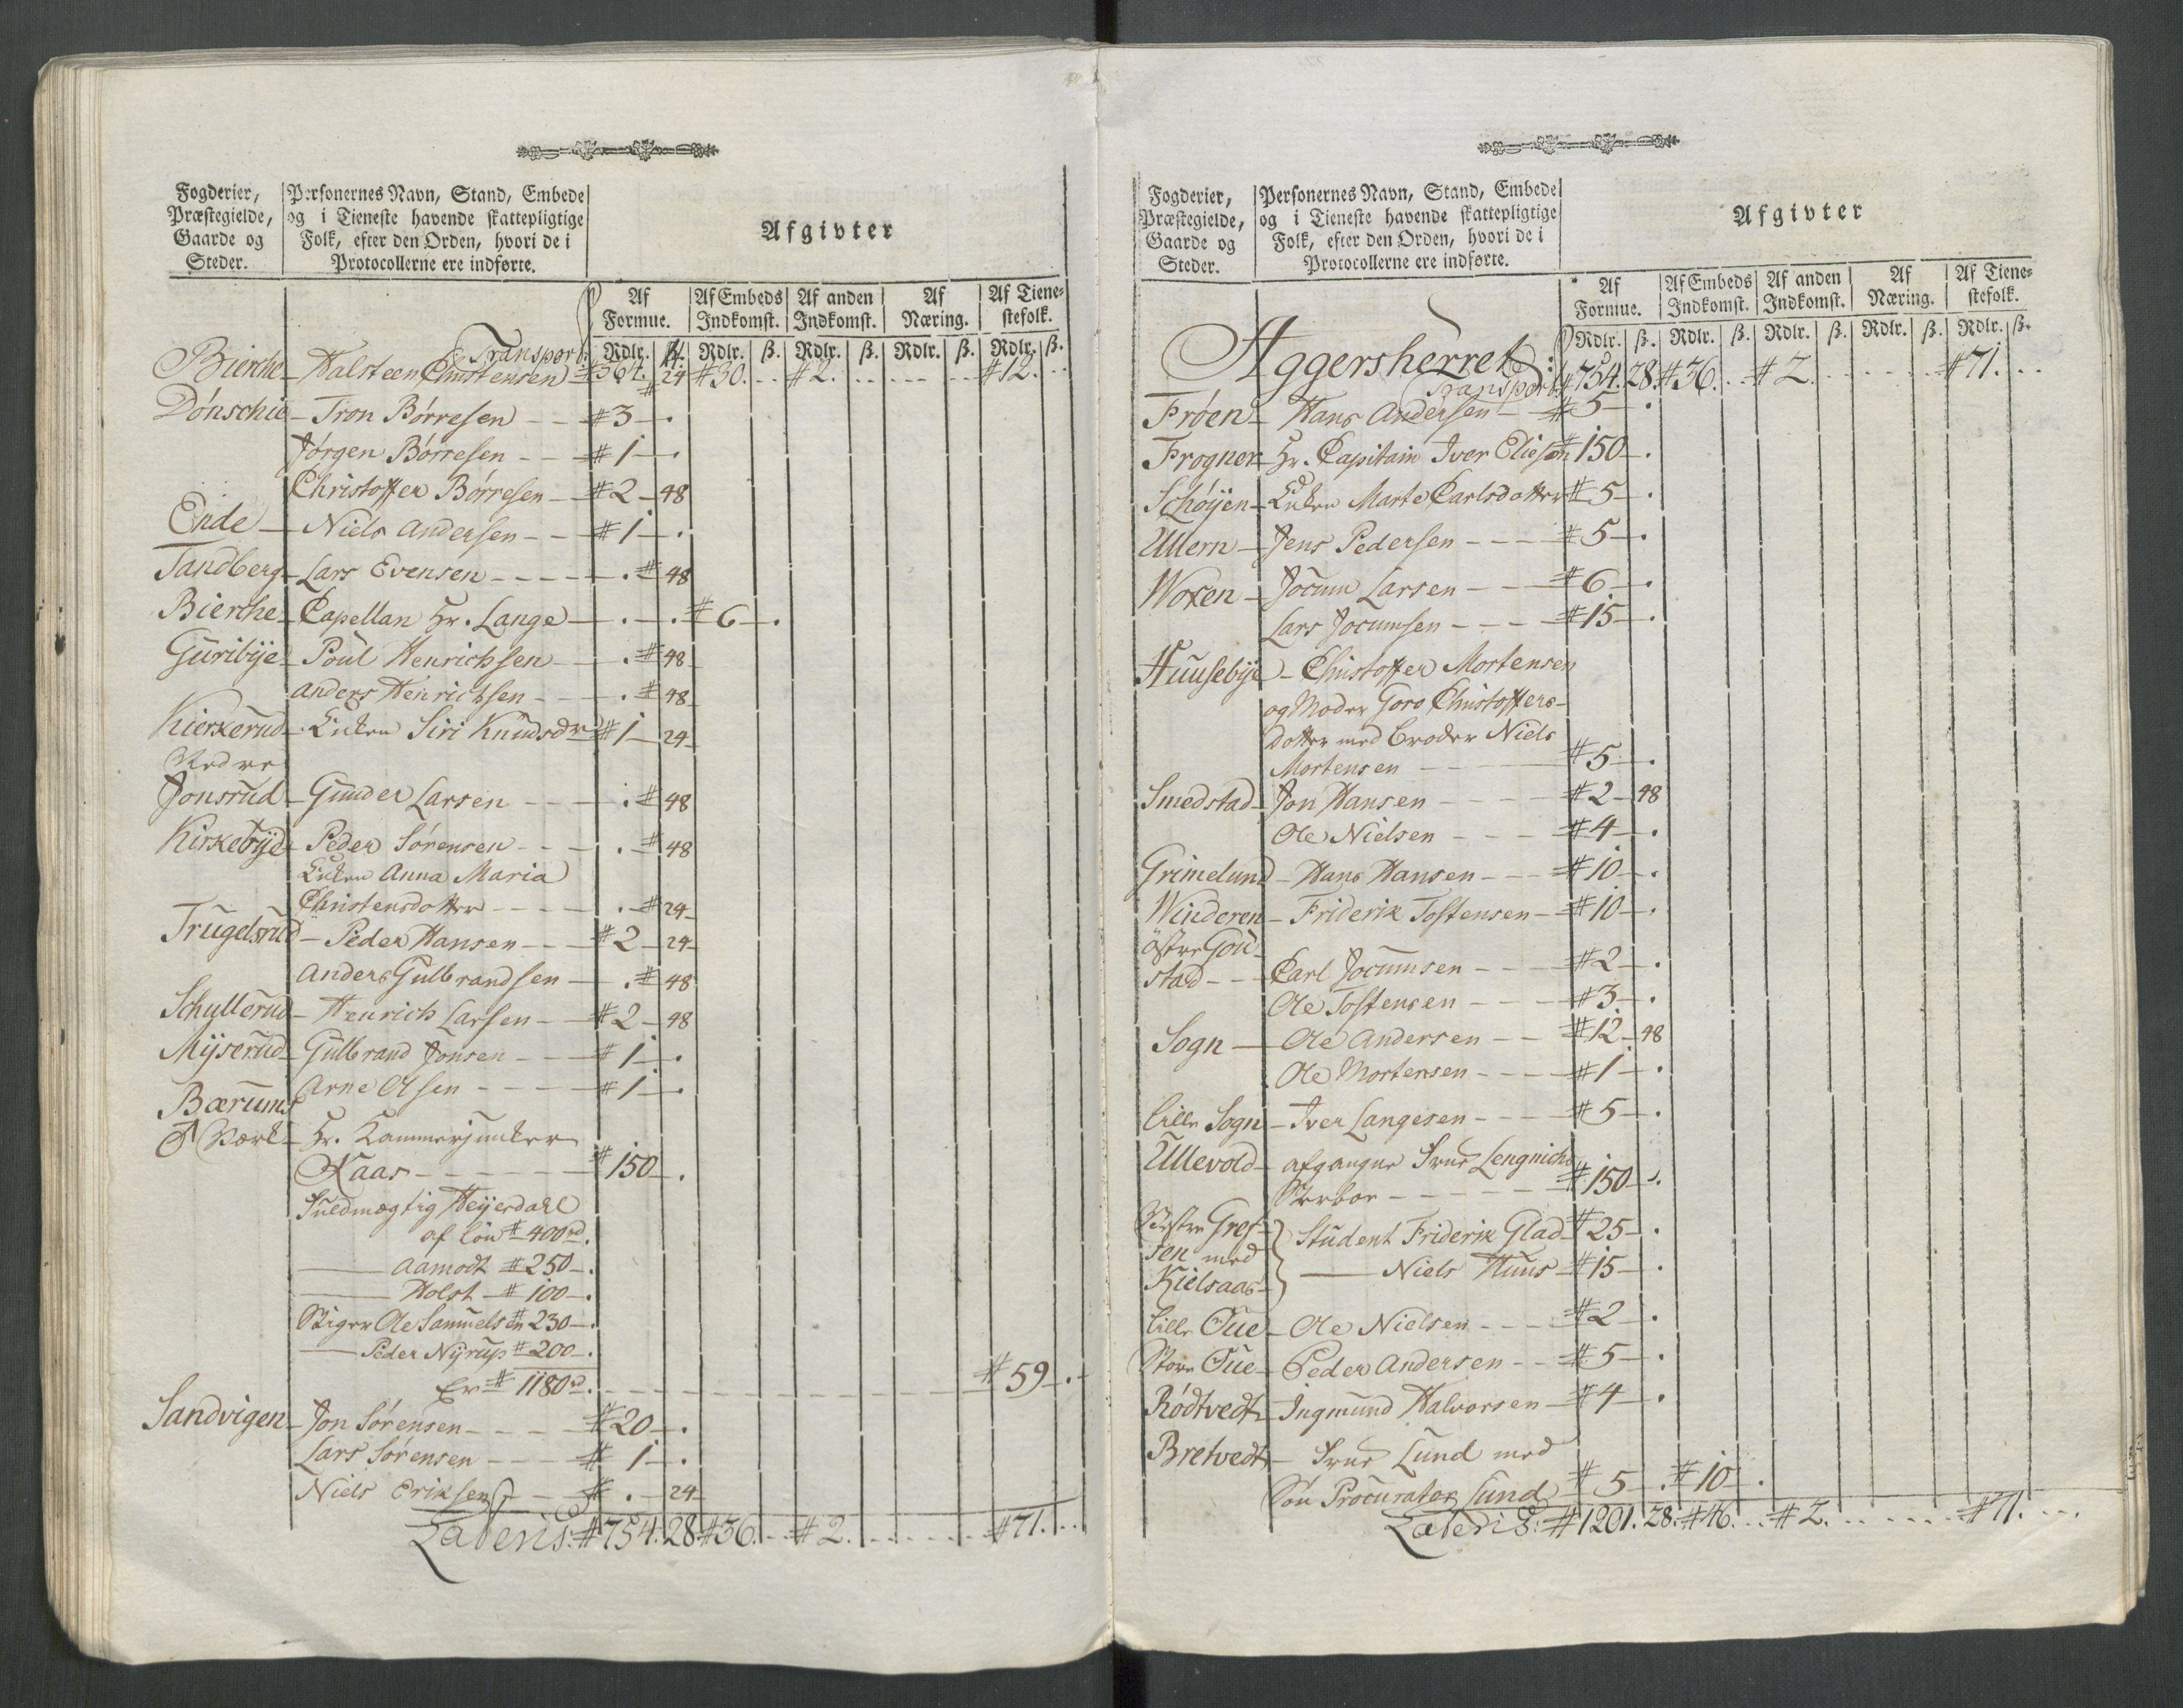 Fogderier,
Præstegielde,
Gaarde og
Steder.
Personernes Navn, Stand, Embede
og i Tieneste havende skattepligtige
Folk, efter den Orden, hvori de i
Protocollerne ere indførte.
Afgivter
Af Formue. Af Embeds Indkomst. Af anden Indkomst. Af Næring. Af Tienestefolk.
Rdlr. ß. Rdlr. ß. Rdlr. ß. Rdlr. ß. Rdlr. ß.
Transport #30. #2. #12.
Bierche Halsteen Christensen 24
Dónschie Tron Börresen #3 .
Jörgen Börresen #1 .
Christoffer Börresen #2 48
Ende Niels Andersen #1 .
Tandberg Lars Evensen . # 48
Bierche Capellan Hr. Lange . . #6 .
Guribÿe Poul Henrichsen . # 48
Anders Henrichsen . # 48
Kierkerud Enken Siri Knudsdr #1 24
Nedre
Jonsrud Gunder Larsen . # 48
Kirkebÿe Peder Sörensen . # 48
Enken Anna Maria
Christensdotter . # 24
Trugelsrud Peder Hansen #2 24
Anders Gulbrandsen . # 48
Schullerud Henrich Larsen #2 48
Mÿserud Gulbrand Jonsen #1 .
Arne Olsen #1 .
Bærums
Værk Hr. Kammerjunker
Kaas #150 .
Fuldmægtig Heÿerdahl
af lön # 400 rd.
Aamodt # 250 .
Holst # 100 .
Stiger Ole Samuelsen # 230 .
Peder Nÿrup # 200 .
Er # 1180 rd. #59 .
Sandvigen Jon Sörensen #20 .
Lars Sörensen # 1 .
Niels Eriksen # . 24
Lateris: #754. 28 #36. #2. #71.
Fogderier,
Præstegielde,
Gaarde og
Steder.
Personernes Navn, Stand, Embede
og i Tieneste havende skattepligtige
Folk, efter den Orden, hvori de i
Protocollerne ere indførte.
Afgivter
Af Formue. Af Embeds Indkomst. Af anden Indkomst. Af Næring. Af Tienestefolk.
Rdlr. ß. Rdlr. ß. Rdlr. ß. Rdlr. ß. Rdlr. ß.
Aggersherret:
Transport #754. 28. #36. #2. #71.
Fröen Hans Andersen # 5 .
Frogner Hr. Capitain Iver Elieson #150 .
Schöÿen Enken Marte Carlsdotter #5 .
Ullern Jens Pedersen #5 .
Woxen Jocum Larsen #6 .
Lars Jocumsen #15 .
Huusebÿe Christoffer Mortensen
og Moder Goro Christoffers-
dotter med Broder Niels
Mortensen #5 .
Smedstad Jon Hansen #2 48
Ole Nielsen #4 .
Grimelund Hans Hansen #10 .
Winderen Friderik Tostensen #10 .
östre Gou-
stad Carl Jocumsen #2 .
Ole Tostensen #3 .
Sogn Ole Andersen #12 48
Ole Mortensen #1 .
lille Sogn Iver Langesen #5 .
Ullevold afgangne Frue Lengnichs
Sterboe #150 .
Vestre Gref-
sen med
Kielsaas } Student Friderik Glad #25 .
Niels Huus #15 .
lille Öue Ole Nielsen #2 .
Store Öue Peder Andersen #5 .
Rödtvedt Ingmund Halvorsen #4 .
Bretvedt Frue Lund med
Sön Procurator Lund #5 . #10 .
Lateris: #1201. 28. #46. #2. #71.